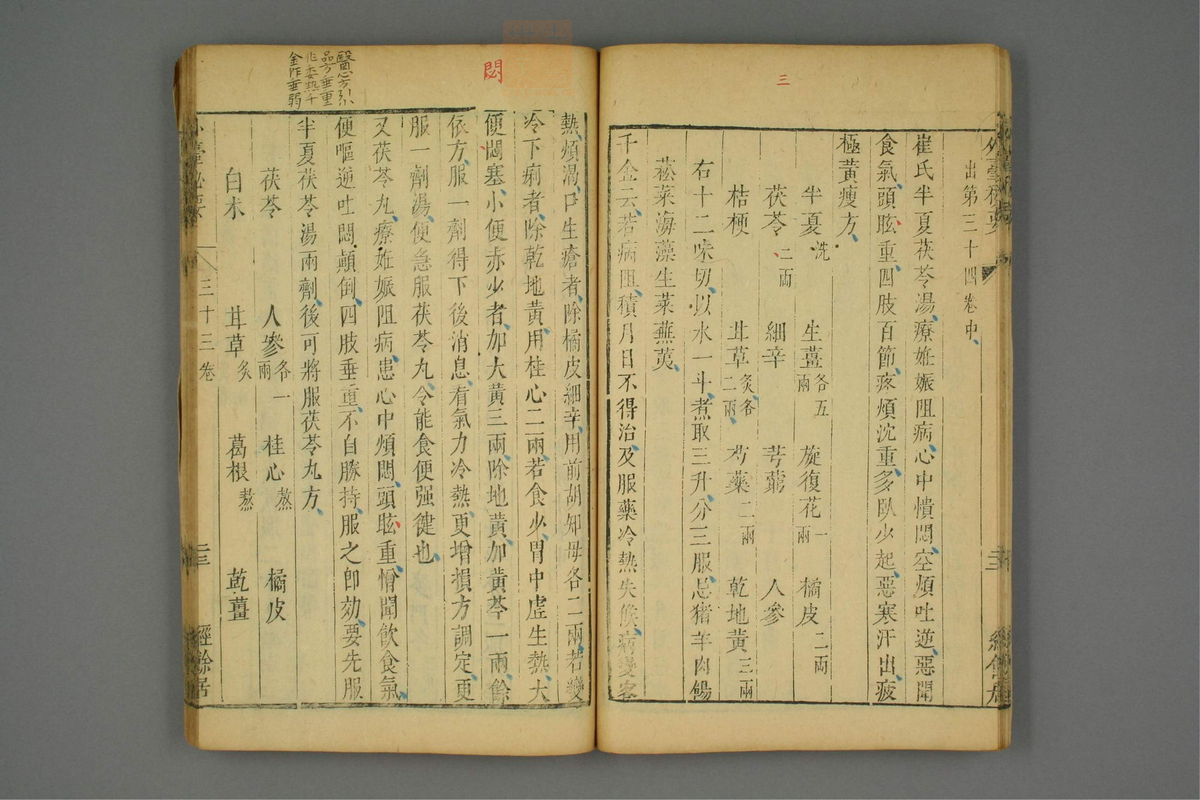 三
出第三十四卷中
崔氏半夏茯苓湯療姙娠阻病心中憒悶空煩吐逆惡聞
食氣頭眩重四肢百節疼煩沈重多臥少起惡寒汗出疲
極黃瘦方
半夏洗 生薑各五兩 旋復花一兩 橘皮二兩
茯苓二兩 細辛 芎藭 人參
桔梗 甘草炙各二兩 芍藥二兩 乾地黃三兩
右十二味切以水一斗煮取三升分三服忌猪羊肉餳
菘菜海藻生菜蕪荑
千金云若病阻積月日不得治及服藥冷熱失候病變客
熱煩渴口生瘡者除橘皮細辛用前胡知母各二兩若變
冷下痢者除乾地黃用桂心二兩若食少胃中虛生熱大
便閟塞小便赤少者加大黃三兩除地黃加黃芩一兩餘
依方服一劑得下後消息看氣力冷熱更增損方調定更
服一劑湯便急服茯苓丸令能食便强健也
又茯苓丸療姙娠阻病患心中煩悶頭眩重憎聞飲食氣
便嘔逆吐悶顛倒四肢垂重不自勝持服之卽効要先服
半夏茯苓湯兩劑後可將服茯苓丸方
茯苓 人參各一兩 桂心熬 橘皮
白朮 甘草炙 葛根熬 乾薑
三十三卷
二十三
經餘居
悶
醫心方引小
品方垂重
作委熱千
金作垂弱